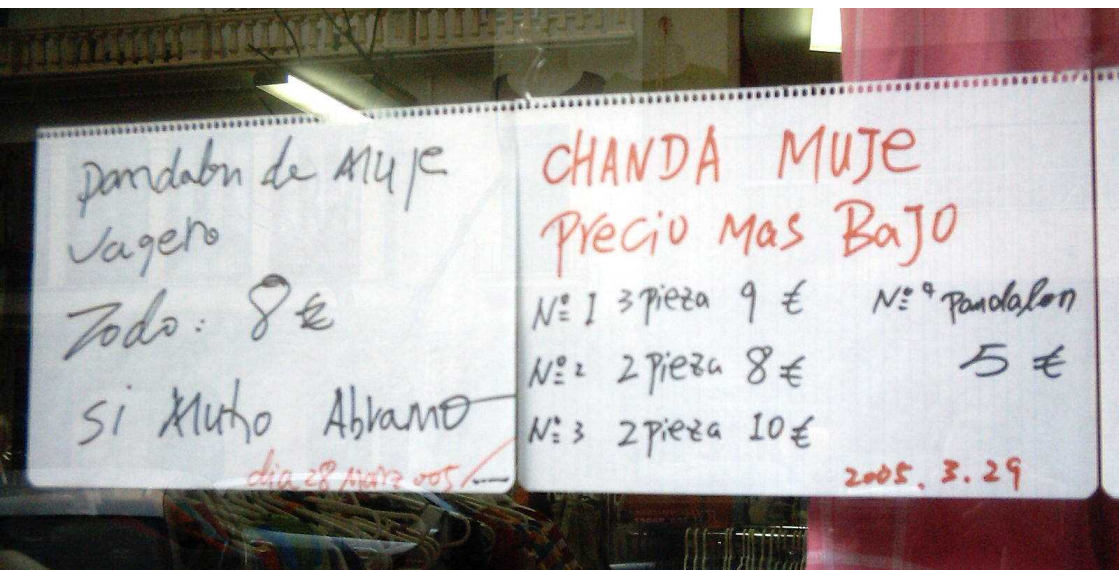 Pandalon de Muje
Vagero
Zodo: 8 €
Si Muho Abramo
dia 28 Marz 005
CHANDA MUJe
Precio Mas BaJO
Nº 1 3 pieza 9 €
Nº 2 2 Pieza 8 €
Nº 3 2 Pieza 10 €
Nº 4 Pandalon
5 €
2005. 3. 29